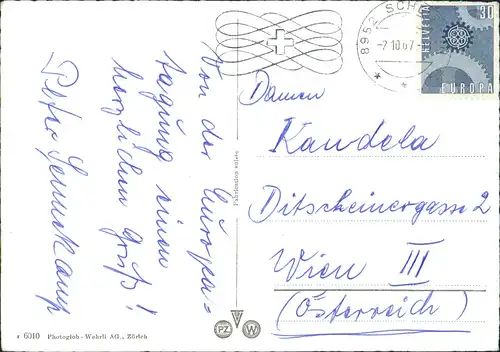 Von der Europa-
tagung einen
herzlichen Gruß!
Peter
8952 SCH
-7.10.67-
HELVETIA
30
EUROPA
Damen
Kandela
Ditscheinergasse 2
Wien III
(Österreich)
Farbendias selten
r 6010 Photoglob-Wehrli AG., Zürich
PZ W